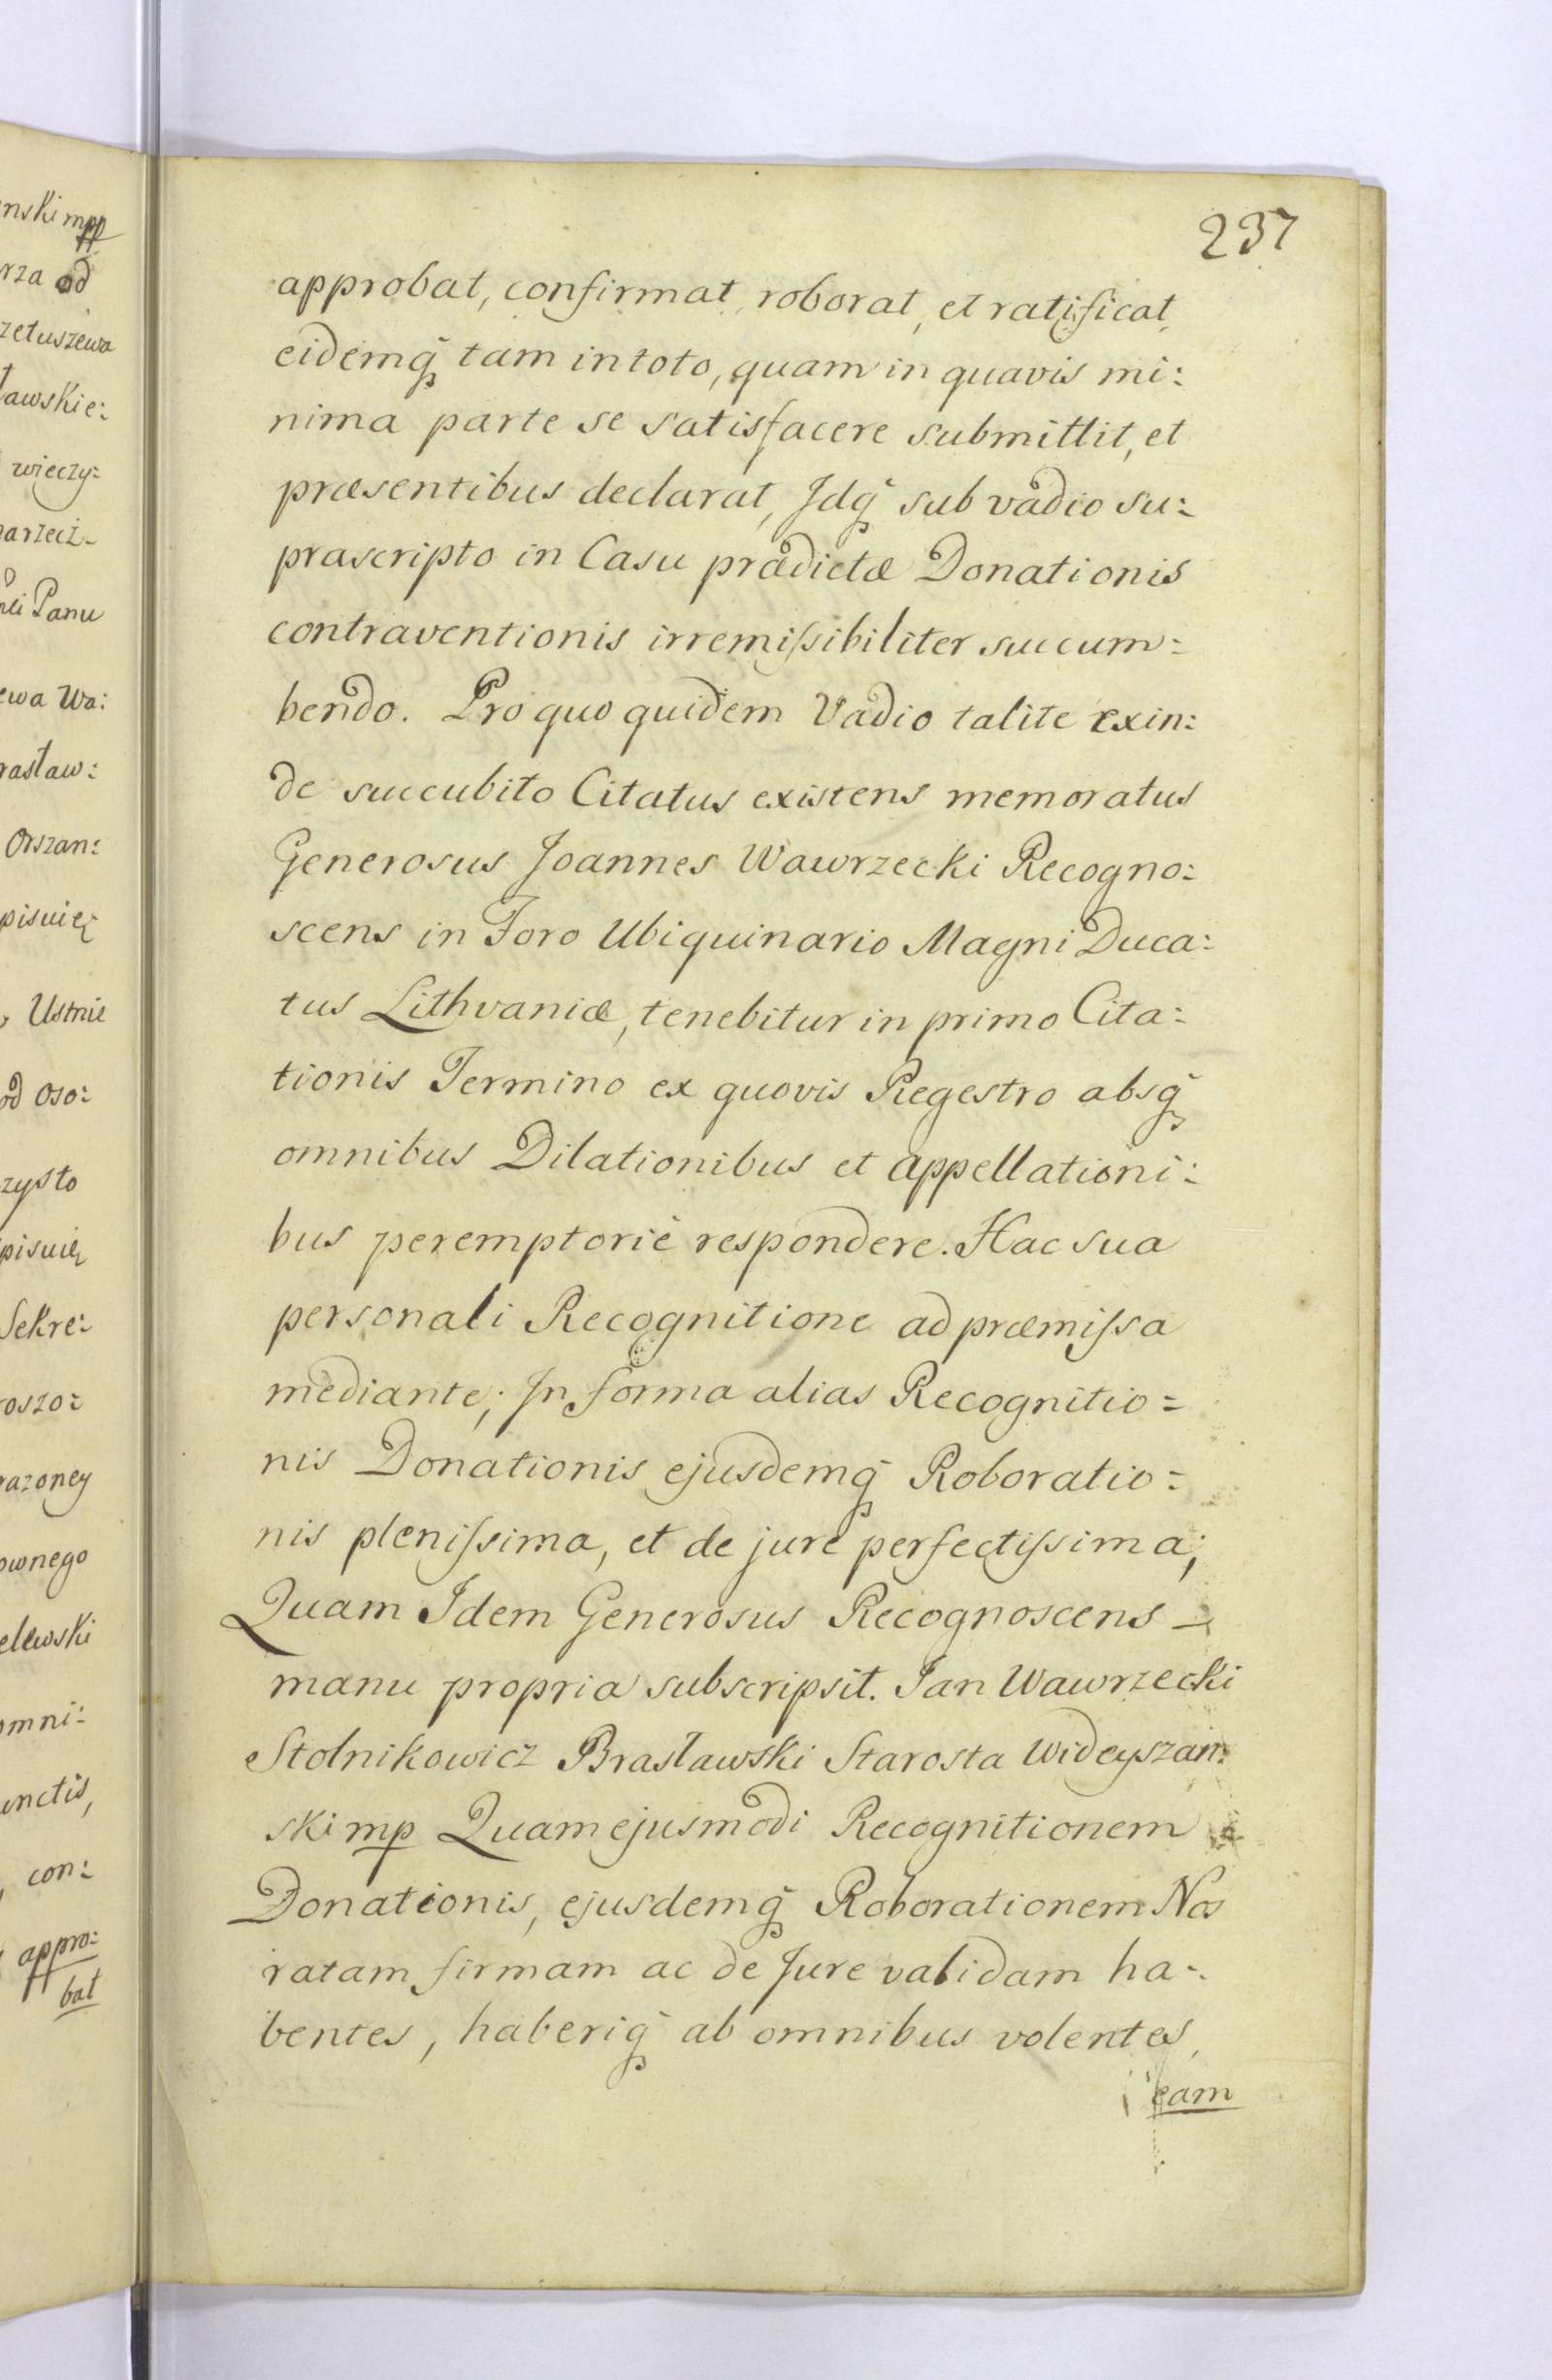 nski mpp
rza od
zetuszewa
ławskie:
wieczy:
arzecz-
Panu
ewa Wa:
rasław:
Orszan:
pisuię
, Ustnie
od oso:
zysto
pisuię
Sekre:
roszo:
razoney
ownego
elewski
omni:
unctis,
, con:
appro:
bat
237
approbat, confirmat, roborat, et ratificat,
eidemq̃ tam in toto, quam in quavis mi:
nima parte se satisfacere submittit, et
præsentibus declarat, Idq̃ sub vadio su:
prascripto in Casu prædictæ Donationis
contraventionis irremissibiliter succum:
bendo. Pro quo quidem Vadio talite exin:
de succubito Citatus existens memoratus
Generosus Joannes Wawrzecki Recogno:
scens in Foro Ubiquinario Magni Duca:
tus Lithvaniæ, tenebitur in primo Cita:
tionis Termino ex quovis Regestro absq̃
omnibus Dilationibus et appellationi:
bus peremptoriè respondere. Hac sua
personali Recognitione ad præmissa
mediante; In forma alias Recognitio=
nis Donationis ejusdemq̃ Roboratio=
nis plenissima, et de jure perfectissima;
Quam Idem Generosus Recognoscens –
manu propria subscripsit. Jan Wawrzecki
Stolnikowicz Brasławski Starosta Wideyszan:
ski mp Quam ejusmodi Recognitionem
Donationis, ejusdemq̃ Roborationem Nos
ratam firmam ac de Jure validam ha-
bentes, haberiq̃ ab omnibus volentes,
eam